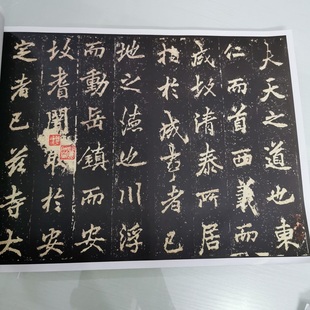 夫天之道也東
仁而首西義而
成故清泰所居
指於成者已
地之德也川浮
而動岳鎮而安
故耆闍取於安
定者已兹寺大